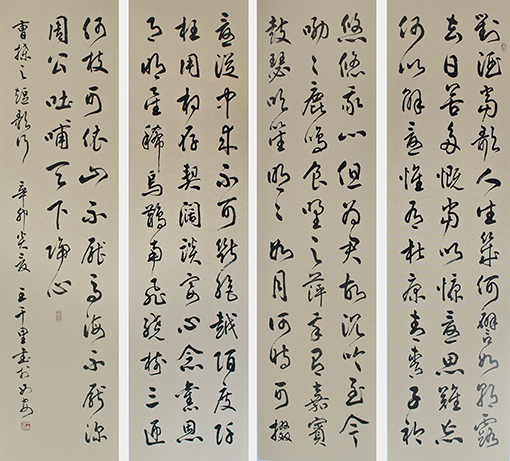 對酒當歌人生幾何譬如朝露
去日苦多慨當以慷憂思難忘
何以解憂惟有杜康青青子衿
悠悠我心但為君故沉吟至今
呦々鹿鳴食野之萍我有嘉賓
鼓瑟吹笙明々如月何時可掇
憂從中來不可斷絕越陌度阡
枉用相存契闊談宴心念舊恩
月明星稀烏鵲南飛繞樹三匝
何枝可依山不厭高海不厭深
周公吐哺天下歸心
曹操之短歌行 辛卯炎夏 王千里書於